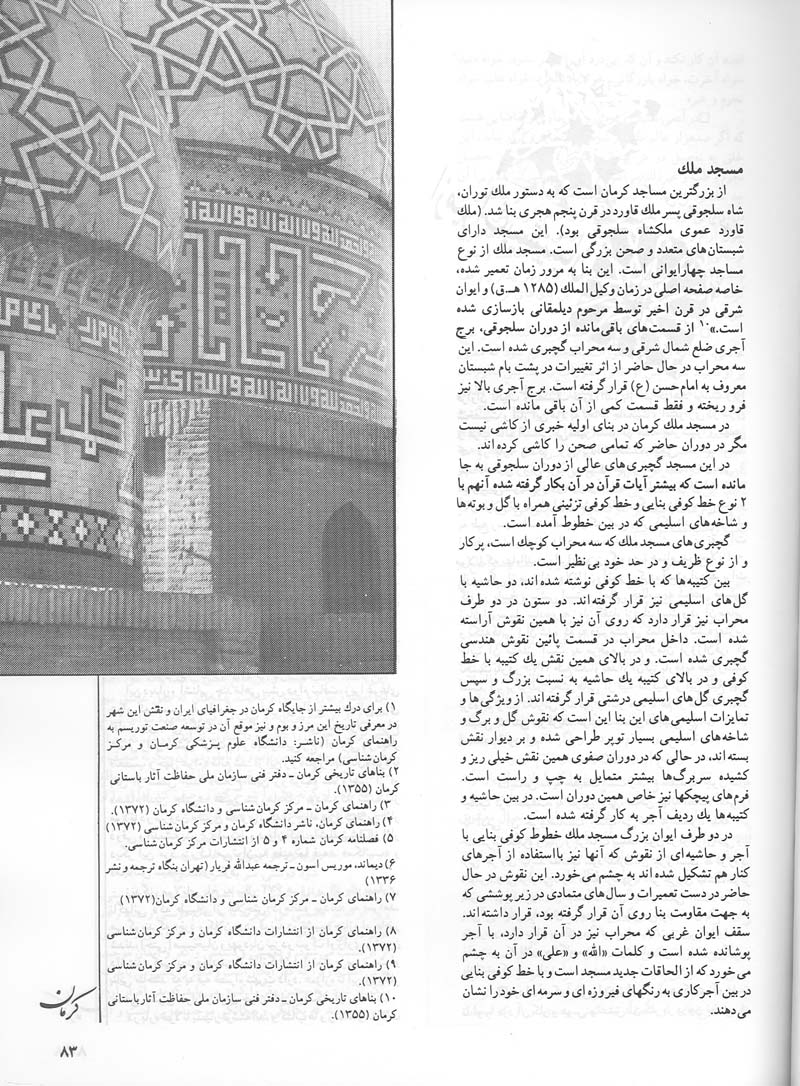 مسجد ملك
از بزرگترین مساجد کرمان است که به دستور ملك توران،
شاه سلجوقی پسر ملك قاورد در قرن پنجم هجری بنا شد. (ملك
قاورد عموی ملکشاه سلجوقی بود). این مسجد دارای
شبستان‌های متعدد و صحن بزرگی است. مسجد ملك از نوع
مساجد چهارایوانی است. این بنا به مرور زمان تعمیر شده،
خاصه صفحه اصلی در زمان وکیل الملك (۱۲۸۵ هـ.ق) و ایوان
شرقی در قرن اخیر توسط مرحوم دیلمقانی بازسازی شده
است.»۱۰ از قسمت‌های باقی‌مانده از دوران سلجوقی، برج
آجری ضلع شمال شرقی و سه محراب گچبری شده است. این
سه محراب در حال حاضر از اثر تغییرات در پشت بام شبستان
معروف به امام حسن (ع) قرار گرفته است. برج آجری بالا نیز
فرو ریخته و فقط قسمت کمی از آن باقی مانده است.
در مسجد ملك کرمان در بنای اولیه خبری از کاشی نیست
مگر در دوران حاضر که تمامی صحن را کاشی کرده‌اند.
در این مسجد گچبری‌های عالی از دوران سلجوقی به جا
مانده است که بیشتر آیات قرآن در آن بکار گرفته شده آنهم با
۲ نوع خط کوفی بنایی و خط کوفی تزئینی همراه با گل و بوته‌ها
و شاخه‌های اسلیمی که در بین خطوط آمده است.
گچبری‌های مسجد ملك که سه محراب کوچك است، پرکار
و از نوع ظریف و در حد خود بی‌نظیر است.
بین کتیبه‌ها که با خط کوفی نوشته شده‌اند، دو حاشیه با
گل‌های اسلیمی نیز قرار گرفته‌اند. دو ستون در دو طرف
محراب نیز قرار دارد که روی آن نیز با همین نقوش آراسته
شده است. داخل محراب در قسمت پائین نقوش هندسی
گچبری شده است. و در بالای همین نقش یك کتیبه با خط
کوفی و در بالای کتیبه یك حاشیه به نسبت بزرگ و سپس
گچبری گل‌های اسلیمی درشتی قرار گرفته‌اند. از ویژگی‌ها و
تمایزات اسلیمی‌های این بنا این است که نقوش گل و برگ و
شاخه‌های اسلیمی بسیار توپر طراحی شده و بر دیوار نقش
بسته‌اند، در حالی که در دوران صفوی همین نقش خیلی ریز و
کشیده سربرگ‌ها بیشتر متمایل به چپ و راست است.
فرم‌های پیچکها نیز خاص همین دوران است. در بین حاشیه و
کتیبه‌ها یك ردیف آجر به کار گرفته شده است.
در دو طرف ایوان بزرگ مسجد ملك خطوط کوفی بنایی با
آجر و حاشیه‌ای از نقوش که آنها نیز بااستفاده از آجرهای
کنار هم تشکیل شده‌اند به چشم می‌خورد. این نقوش در حال
حاضر در دست تعمیرات و سال‌های متمادی در زیر پوششی که
به جهت مقاومت بنا روی آن قرار گرفته بود، قرار داشته‌اند.
سقف ایوان غربی که محراب نیز در آن قرار دارد، با آجر
پوشانده شده است و کلمات «الله» و «علی» در آن به چشم
می‌خورد که از الحاقات جدید مسجد است و با خط کوفی بنایی
در بین آجرکاری به رنگهای فیروزه‌ای و سرمه‌ای خود را نشان
می‌دهند.
۱) برای درك بیشتر از جایگاه کرمان در جغرافیای ایران و نقش این شهر
در معرفی تاریخ این مرز و بوم و نیز موقع آن در توسعه صنعت توریسم به
راهنمای کرمان (ناشر: دانشگاه علوم پزشکی کرمان و مرکز
کرمان شناسی) مراجعه کنید.
۲) بناهای تاریخی کرمان ـ دفتر فنی سازمان ملی حفاظت آثار باستانی
کرمان (۱۳۵۵).
۳) راهنمای کرمان ـ مرکز کرمان شناسی و دانشگاه کرمان (۱۳۷۲).
۴) راهنمای کرمان، ناشر دانشگاه کرمان و مرکز کرمان شناسی (۱۳۷۲)
۵) فصلنامه کرمان شماره ۴ و ۵ از انتشارات مرکز کرمان شناسی.
۶) دیماند، موریس اسون ـ ترجمه عبدالله فریار (تهران بنگاه ترجمه و نشر
۱۳۳۶
۷) راهنمای کرمان ـ مرکز کرمان شناسی و دانشگاه کرمان(۱۳۷۲)
۸) راهنمای کرمان از انتشارات دانشگاه کرمان و مرکز کرمان شناسی
(۱۳۷۲).
۹) راهنمای کرمان از انتشارات دانشگاه کرمان و مرکز کرمان شناسی
(۱۳۷۲).
۱۰) بناهای تاریخی کرمان ـ دفتر فنی سازمان ملی حفاظت آثار باستانی
کرمان (۱۳۵۵).
کرمان
۸۳